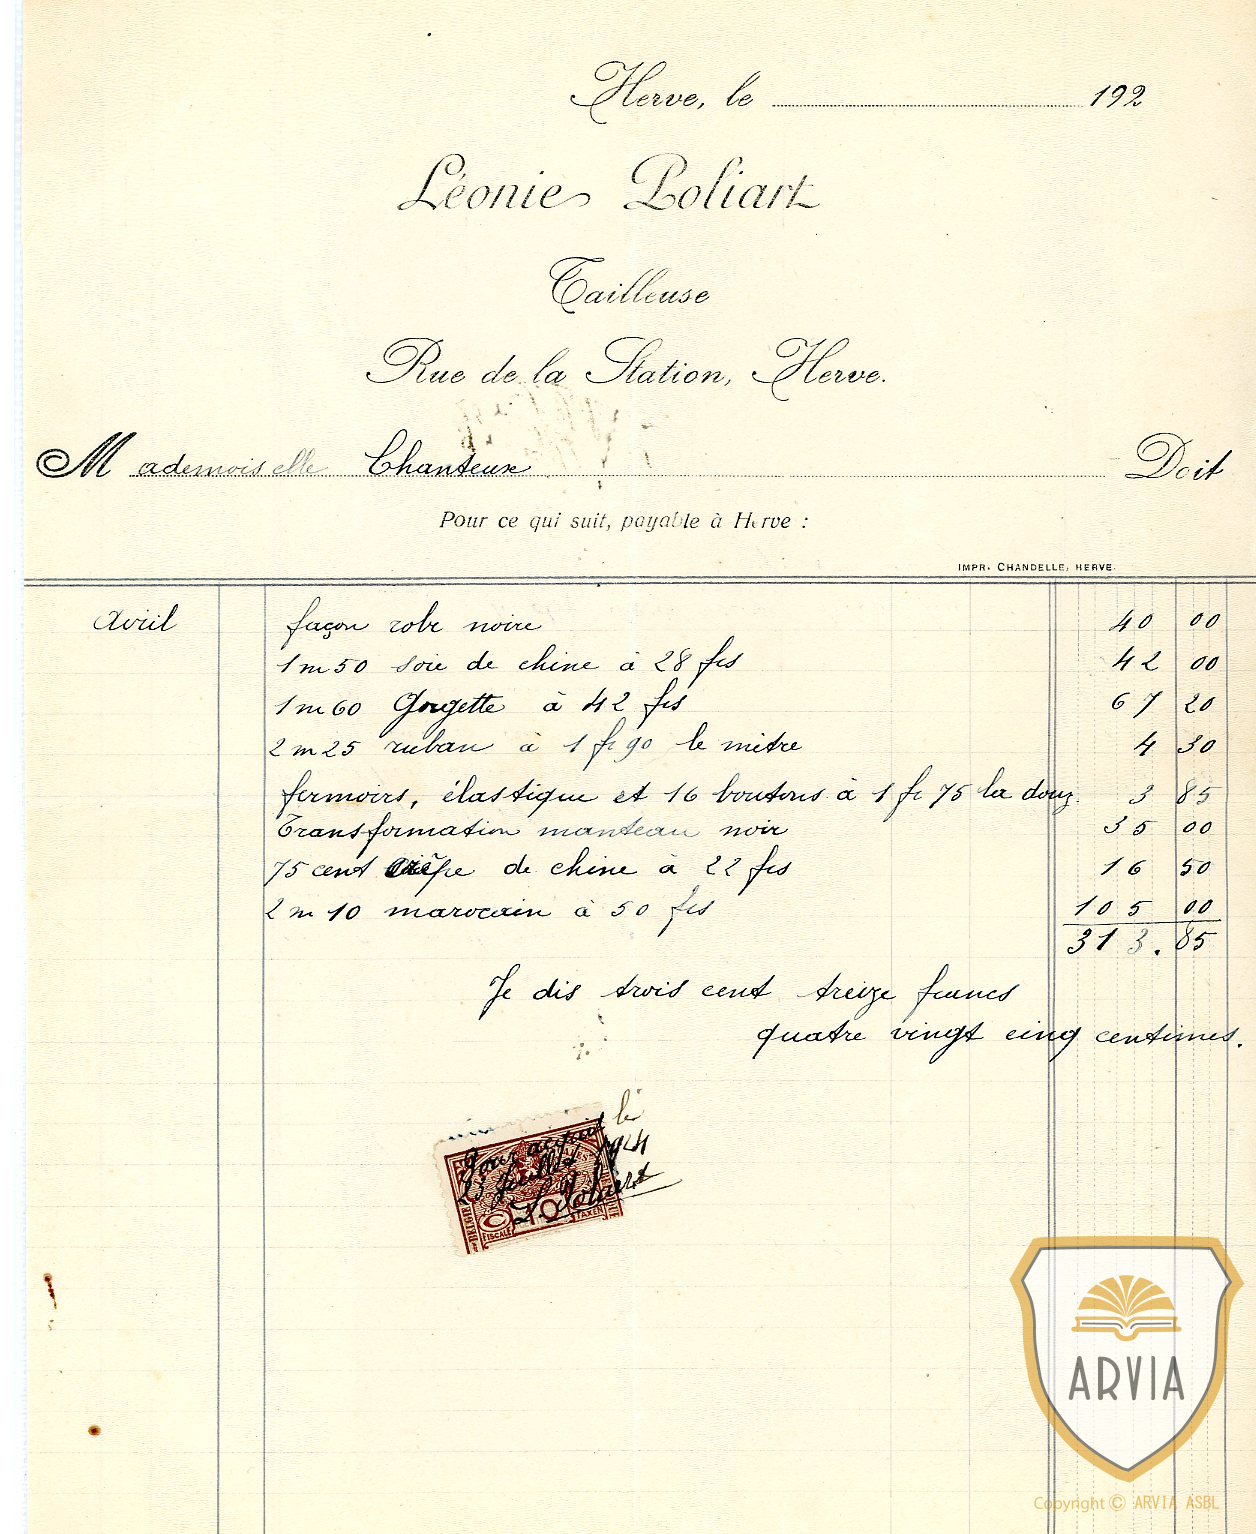 Herve, le 192
Léonie Poliart
Tailleuse
Rue de la Station, Herve.
Mademoiselle Chanteux Doit
Pour ce qui suit, payable à Herve :
IMPR. CHANDELLE, HERVE.
Avril façon robe noire 40 00
1m50 soie de chine à 28 frs 42 00
1m60 Gorgette à 42 frs 67 20
2m25 ruban à 1 fr 90 le mètre 4 30
fermoirs, élastique et 16 boutons à 1 fr 75 la douz. 3 85
Transformation manteau noir 35 00
75 cent crêpe de chine à 22 frs 16 50
2m10 marocain à 50 frs 105 00
313.85
Je dis trois cent treize francs
quatre vingt cinq centimes.
Pour acquit le
23 Juillet 1924
L Poliart
FISCALE TAXEN
ARVIA
Copyright © ARVIA ASBL